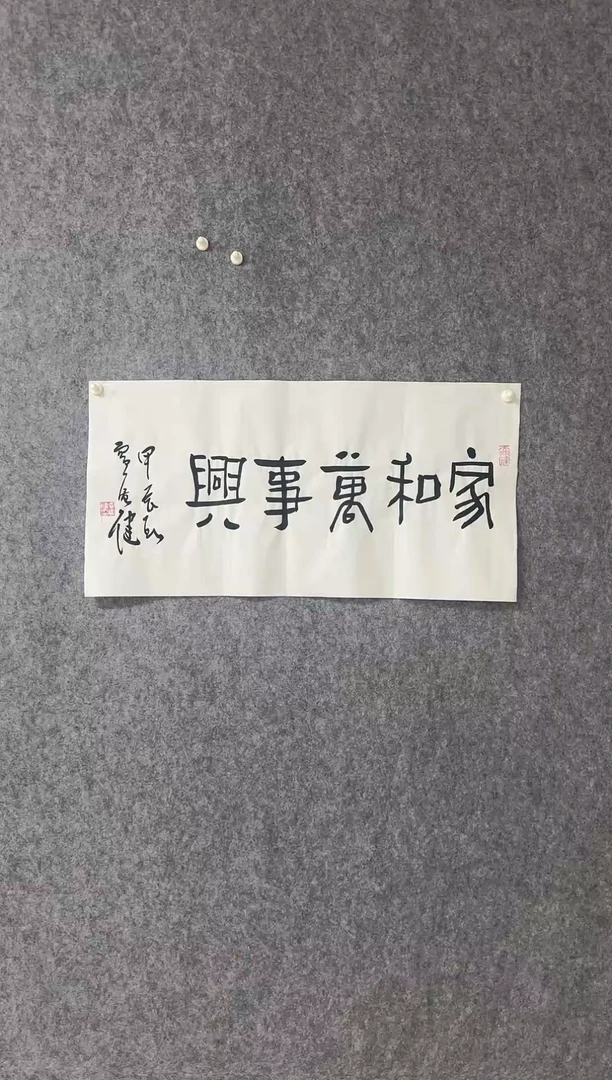 家和萬事興
甲辰
健